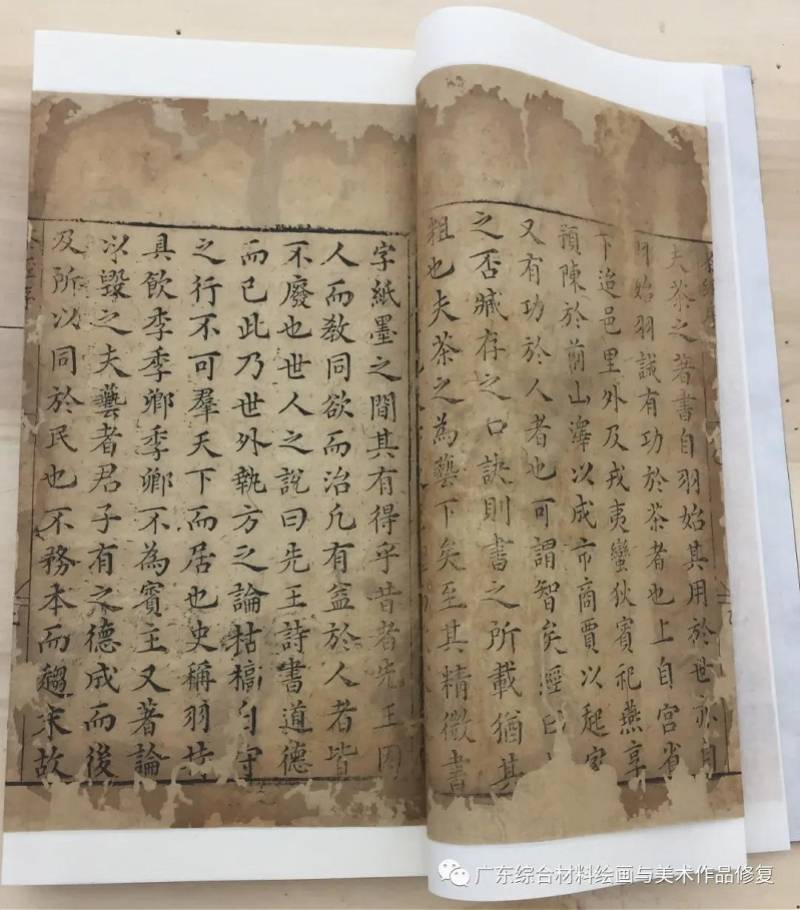 夫茶之著書自羽始其用於世亦自
始羽誠有功於茶者也上自宮省
下迨邑里外及戎夷蠻狄賓祀燕享
預陳於前山澤以成市商賈以起家
又有功於人者也可謂智矣經曰
之否臧存之口訣則書之所載猶其
粗也夫茶之為藝下矣至其精微書
字紙墨之間其有得乎昔者先王因
人而教同欲而治凡有益於人者皆
不廢也世人之說曰先王詩書道德
而已此乃世外執方之論枯槁自守
之行不可羣天下而居也史稱羽持
具飲李季卿季卿不為賓主又著論
以毀之夫藝者君子有之德成而後
及所以同於民也不務本而趨末故
广东综合材料绘画与美术作品修复